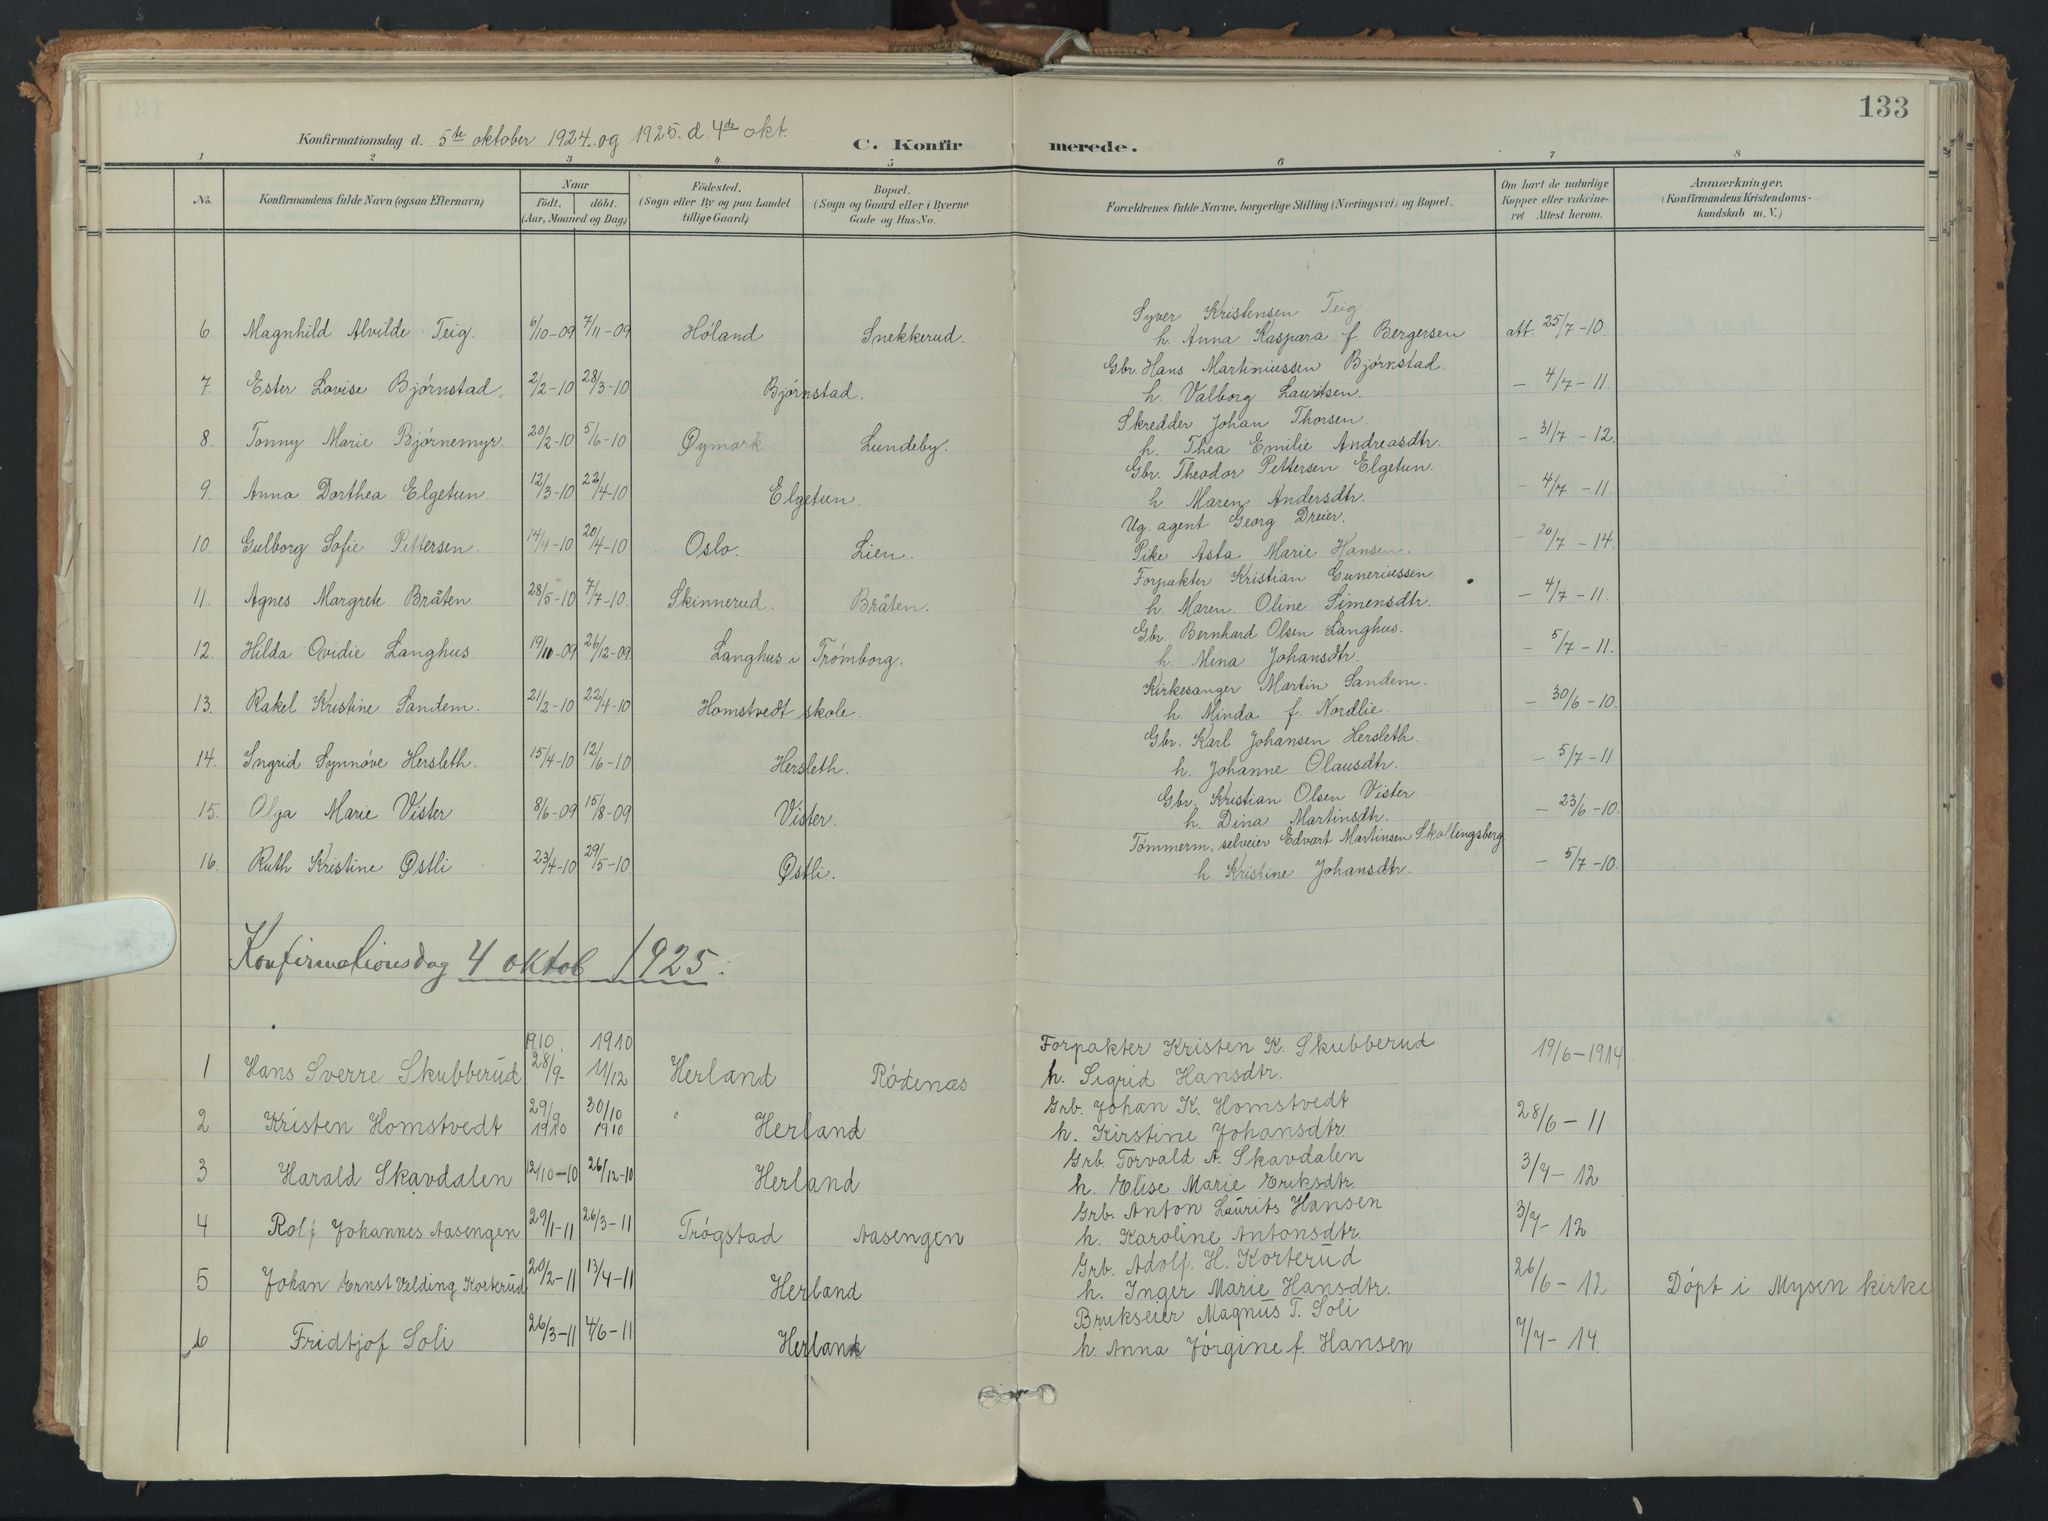 133
Konfirmationsdag d. 5te oktober 1924. og 1925. d. 4de okt.
C. Konfirmerede.
1 2 3 4 5 6 7 8
No. Konfirmandens fulde Navn (ogsaa Efternavn) Naar Födt. döbt. (Aar, Maaned og Dag) Födested. (Sogn eller By og paa Landet tillige Gaard) Bopæl. (Sogn og Gaard eller i Byerne Gade og Hus-No. Forældrenes fulde Navne, borgerlige Stilling (Næringsvei) og Bopæl. Om havt de naturlige Kopper eller vakcineret Attest herom. Anmærkninger. (Konfirmandens Kristendomskundskab m. V.)
Syver Kristensen Teig
6. Magnhild Alvilde Teig. 6/10-09 7/11-09 Høland Snekkerud. h. Anna Kaspara f. Bergersen att. 25/7-10
Gbr. Hans Martiniussen Bjørnstad.
7. Ester Lovise Bjørnstad. 2/2-10 28/3-10 Bjørnstad. h. Valborg Lauritsen. - 4/7-11.
Skredder Johan Thorsen.
8. Tonny Marie Bjørnemyr. 20/2-10 5/6-10 Øymark Lundeby. h. Thea Emilie Andreasdtr. - 31/7-12.
Gbr. Theodor Pettersen Elgetun.
9. Anna Dorthea Elgetun. 12/3-10 22/4-10 Elgetun. h. Maren Andersdtr. - 4/7-11.
Ug. agent Georg Dreier.
10. Gulborg Sofie Pettersen. 14/4-10 20/4-10 Oslo. Lien. Pike Asta Marie Hansen. - 20/7-14.
Forpakter Kristian Guneriussen.
11. Agnes Margrete Bråten 28/5-10 7/7-10. Skinnerud. Bråten. h. Maren Oline Simensdtr. - 4/7-11.
Gbr. Bernhard Olsen Langhus.
12. Hilda Ovidie Langhus 19/11-09 26/12-09 Langhus i Trømborg. h. Mina Johansdtr. - 5/7-11.
Kirkesanger Martin Sandem.
13. Rakel Kristine Sandem. 21/2-10 22/4-10 Homstvedt skole. h. Minda f. Nordlie. - 30/6-10.
Gbr. Karl Johansen Hersleth.
14. Ingrid Synnøve Hersleth. 15/4-10 12/6-10 Hersleth. h. Johanne Olausdtr. - 5/7-11
Gbr. Kristian Olsen Vister
15. Olga Marie Vister 8/6-09 15/8-09 Vister. h. Dina Martinsdtr. - 23/6-10.
Tømmerm, selveier Edvart Martinsen Skollingsberg
16. Ruth Kristine Østli 23/4-10 29/5-10. Østli. h. Kristine Johansdtr. - 5/7-10.
Konfirmationsdag 4 oktob 1925.
1910. 1910 Forpakter Kristen K. Skubberud
1 Hans Sverre Skubberud 28/9- 11/12 Herland Rödenæs h. Sigrid Hansdtr. 19/6-1914
Grb. Johan K. Homstvedt
2 Kristen Homstvedt 29/9 1910 30/10 1910 Herland h. Kirstine Johansdtr. 28/6-11
Grb. Torvald A. Skavdalen
3 Harald Skavdalen 12/10-10 26/12-10 Herland h. Elise Marie Eriksdtr. 3/7-12
Grb. Anton Laurits Hansen
4 Rolf Johannes Aasengen 29/1-11 26/3-11 Trøgstad Aasengen h. Karoline Antonsdtr. 3/7-12
Grb. Adolf. H. Korterud
5 Johan Ernst Velding Korterud 20/2-11 13/4-11 Herland h. Inger Marie Hansdtr. 26/6-12 Döpt i Mysen kirke
Brukseier Magnus T. Soli
6 Fridtjof Soli 26/3-11 4/6-11 Herland h. Anna Jörgine f. Hansen 7/7-14.